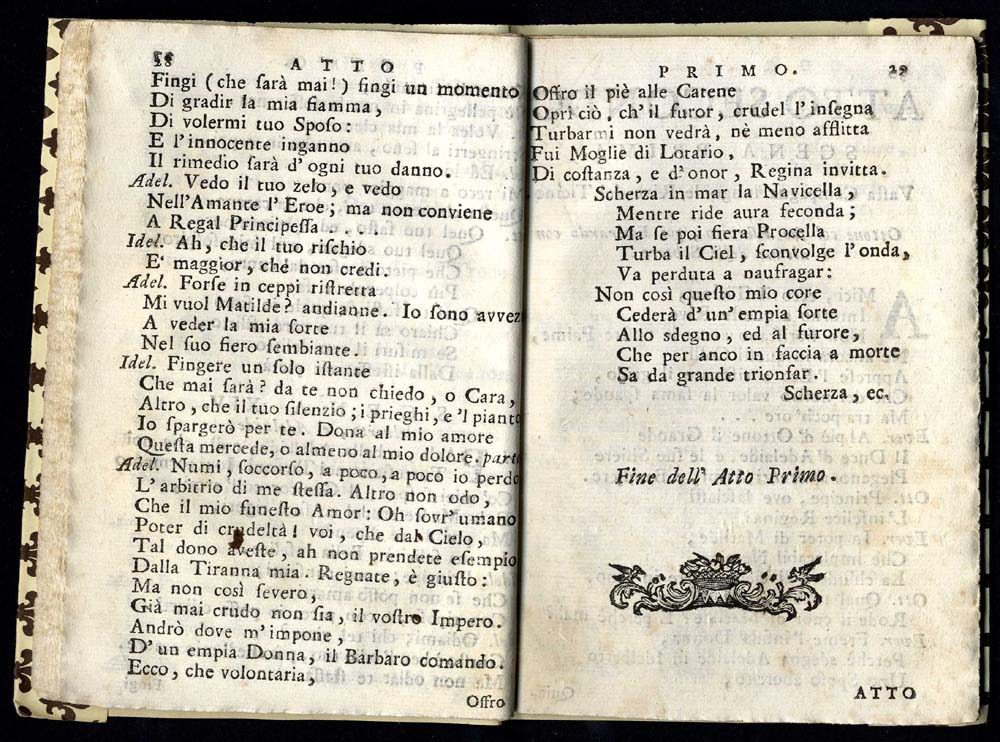 28 ATTO
Fingi (che ſarà mai!) fingi un momento
Di gradir la mia fiamma,
Di volermi tuo Spoſo:
E l'innocente inganno
Il rimedio ſarà d'ogni tuo danno.
Adel. Vedo il tuo zelo, e vedo
Nell'Amante l'Eroe; ma non conviene
A Regal Principeſſa . . . .
Idel. Ah, che il tuo riſchio
E' maggior, che non credi.
Adel. Forſe in ceppi riſtretta
Mi vuol Matilde? andianne. Io ſono avvez
A veder la mia ſorte
Nel ſuo fiero ſembiante.
Idel. Fingere un ſolo iſtante
Che mai ſarà? da te non chiedo, o Cara,
Altro, che il tuo ſilenzio; i prieghi, e 'l piant
Io ſpargerò per te. Dona al mio amore
Queſta mercede, o almeno al mio dolore. part
Adel. Numi, ſoccorſo, a poco, a poco io perdo
L'arbitrio di me ſteſſa. Altro non odo,
Che il mio funeſto Amor: Oh ſovr'umano
Poter di crudeltà! voi, che dal Cielo,
Tal dono aveſte, ah non prendete eſempio
Dalla Tiranna mia. Regnate, è giuſto:
Ma non così ſevero,
Già mai crudo non ſia, il voſtro Impero.
Andrò dove m'impone,
D'un empia Donna, il Barbaro comando.
Ecco, che volontaria,
Offro
PRIMO. 29
Offro il piè alle Catene
Opri ciò, ch'il furor, crudel l'inſegna
Turbarmi non vedrà, nè meno afflitta
Fui Moglie di Lotario,
Di coſtanza, e d'onor, Regina invitta.
Scherza in mar la Navicella,
Mentre ride aura feconda;
Ma ſe poi fiera Procella
Turba il Ciel, ſconvolge l'onda,
Va perduta a naufragar:
Non così queſto mio core
Cederà d'un' empia ſorte
Allo sdegno, ed al furore,
Che per anco in faccia a morte
Sa da grande trionfar.
Scherza, ec.
Fine dell' Atto Primo.
ATTO